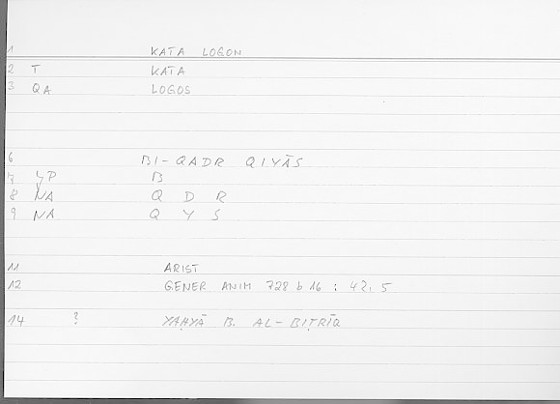 1 KATA LOGON
2 T KATA
3 QA LOGOS
6 BI-QADR QIYĀS
7 YP B
8 NA Q D R
9 NA Q Y S
11 ARIST
12 GENER ANIM 728 b 16 : 42, 5
14 ? YAḤYĀ B. AL-BIṬRĪQ